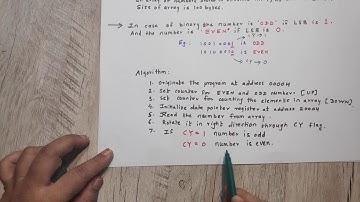 Size of array is 100 bytes.
→ In case of binary the number is 'ODD' if LSB is 1.
And the number is 'EVEN' if LSB is 0.
CY → 1
Eg: 1001 0001 is ODD
1010 1010 is EVEN
CY → 0
Algorithm:
1. Originate the program at address 0000H
2. Set counter for EVEN and ODD number. [UP]
3. Set counter for counting the elements in array [DOWN]
4. Initialize data pointer register at address 2000H
5. Read the number from array.
6. Rotate it in right direction through CY flag.
7. If CY = 1 number is odd
CY = 0 number is even.